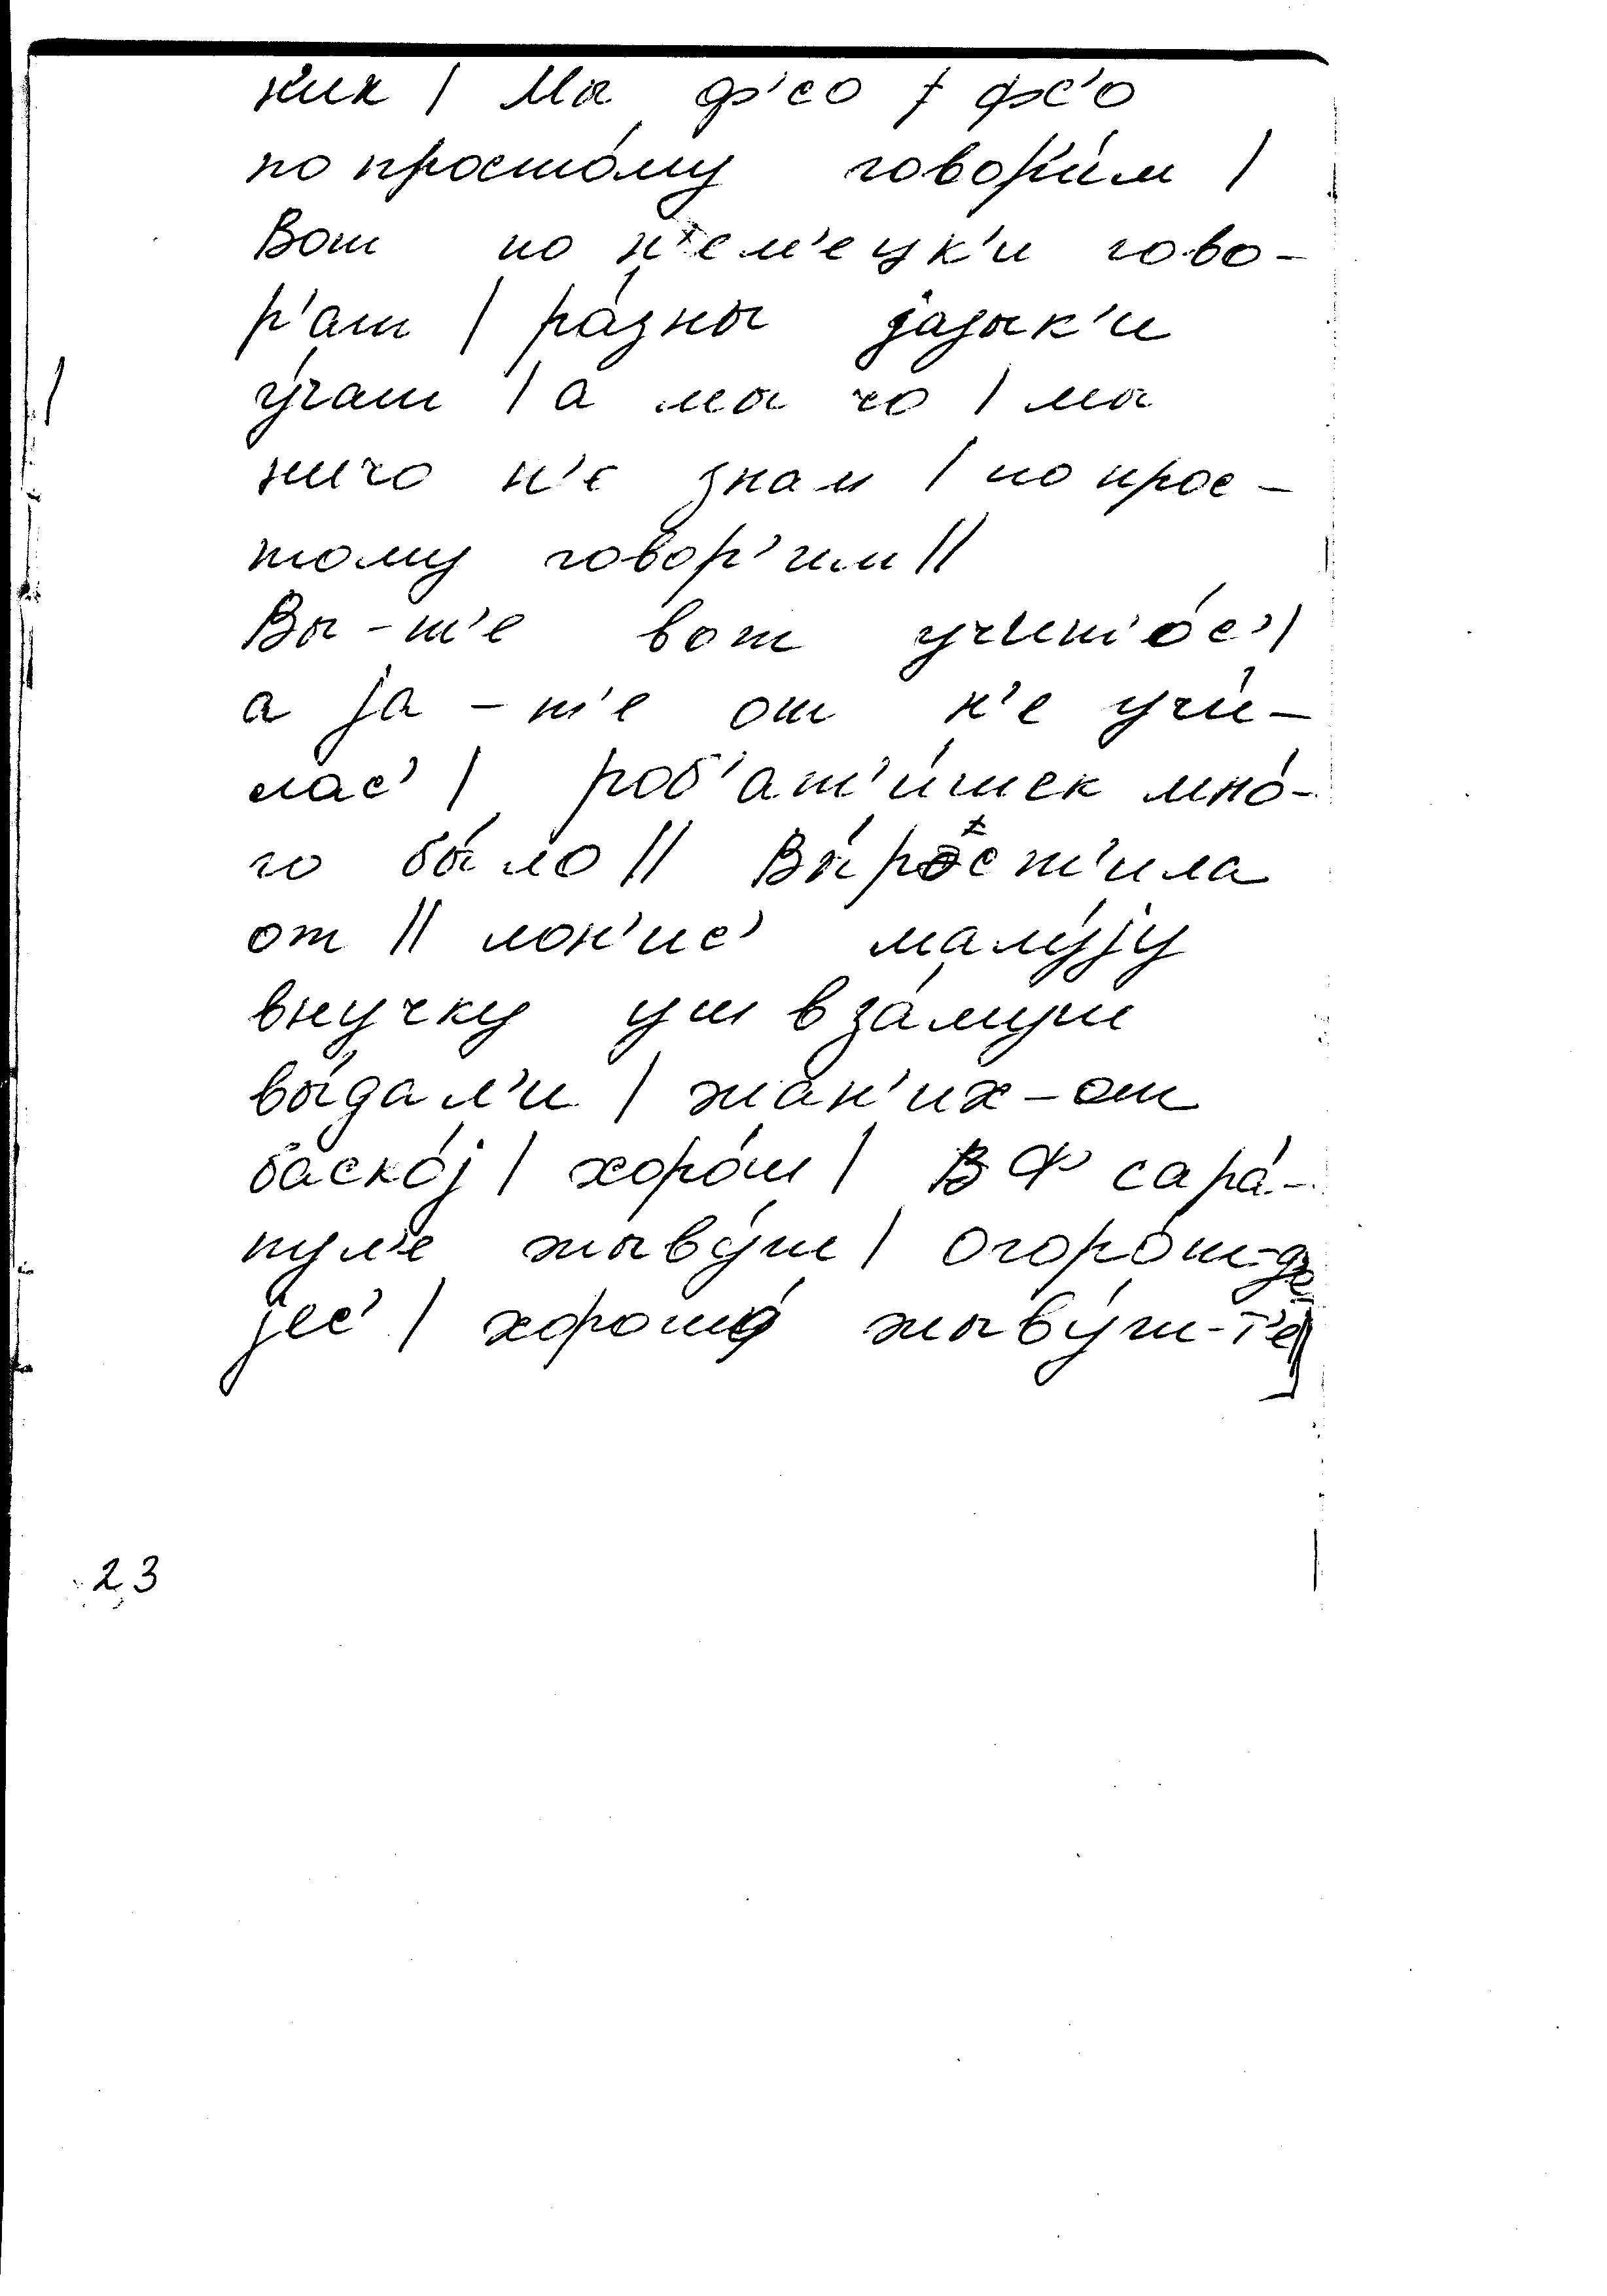 ник | Мы ф'со / фс'о
по просто́му говори́м |
Вот по н'ем'ецк'и гово-
р'ат | ра́зны јазык'и
у́чат | а мы чо | мы
ничо н'е знам | по прос-
тому говор'им ||
Вы-т'е вот учит'о́с' |
а ја-т'е от н'е учи́-
лас' | роб'ат'и́шек мно́-
го бы́ло || Вы́рост'ила
от || лон'ис' малу́ју
внучку уш вза́муш
вы́дал'и | жан'их-от
баско́ј | хоро́ш | В Ф сара́-
пул'е жыву́т | огоро́т-де
јес' | хорошо́ жыву́т-т'е ||
23